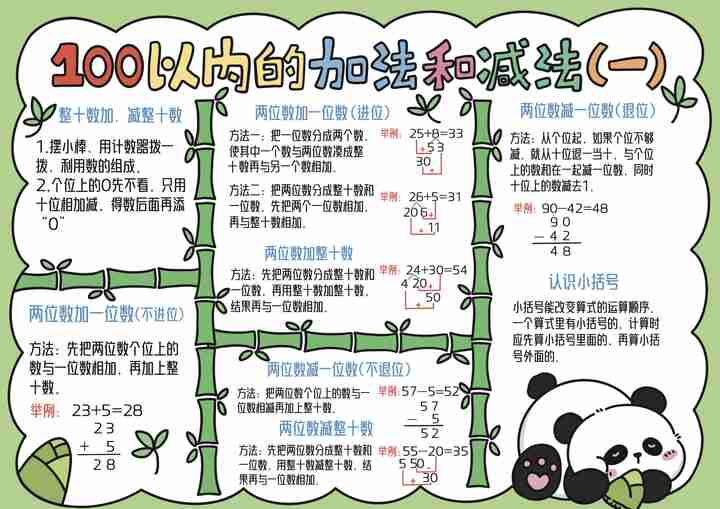 100以内的加法和减法(一)
整十数加、减整十数
1.摆小棒、用计数器拨一
拨，利用数的组成。
2.个位上的0先不看，只用
十位相加减，得数后面再添
“0”
两位数加一位数(不进位)
方法：先把两位数个位上的
数与一位数相加，再加上整
十数。
举例：23+5=28
2 3
+ 5
2 8
两位数加一位数(进位)
方法一：把一位数分成两个数，
使其中一个数与两位数凑成整
十数再与另一个数相加。
举例：25+8=33
+5 3
30 +
方法二：把两位数分成整十数和
一位数，先把两个一位数相加，
再与整十数相加。
举例：26+5=31
20 6+
+ 11
两位数加整十数
方法：先把两位数分成整十数和
一位数，再用整十数加整十数，
结果再与一位数相加。
举例：24+30=54
4 20+
+ 50
两位数减一位数(不退位)
方法：把两位数个位上的数与一
位数相减再加上整十数。
举例：57-5=52
5 7
- 5
5 2
两位数减整十数
方法：先把两位数分成整十数和
一位数，用整十数减整十数，结
果再与一位数相加。
举例：55-20=35
5 50-
+ 30
两位数减一位数(退位)
方法：从个位起，如果个位不够
减，就从十位退一当十，与个位
上的数和在一起减一位数，同时
十位上的数减去1。
举例：90-42=48
9 0
- 4 2
4 8
认识小括号
小括号能改变算式的运算顺序，
一个算式里有小括号的，计算时
应先算小括号里面的，再算小括
号外面的。